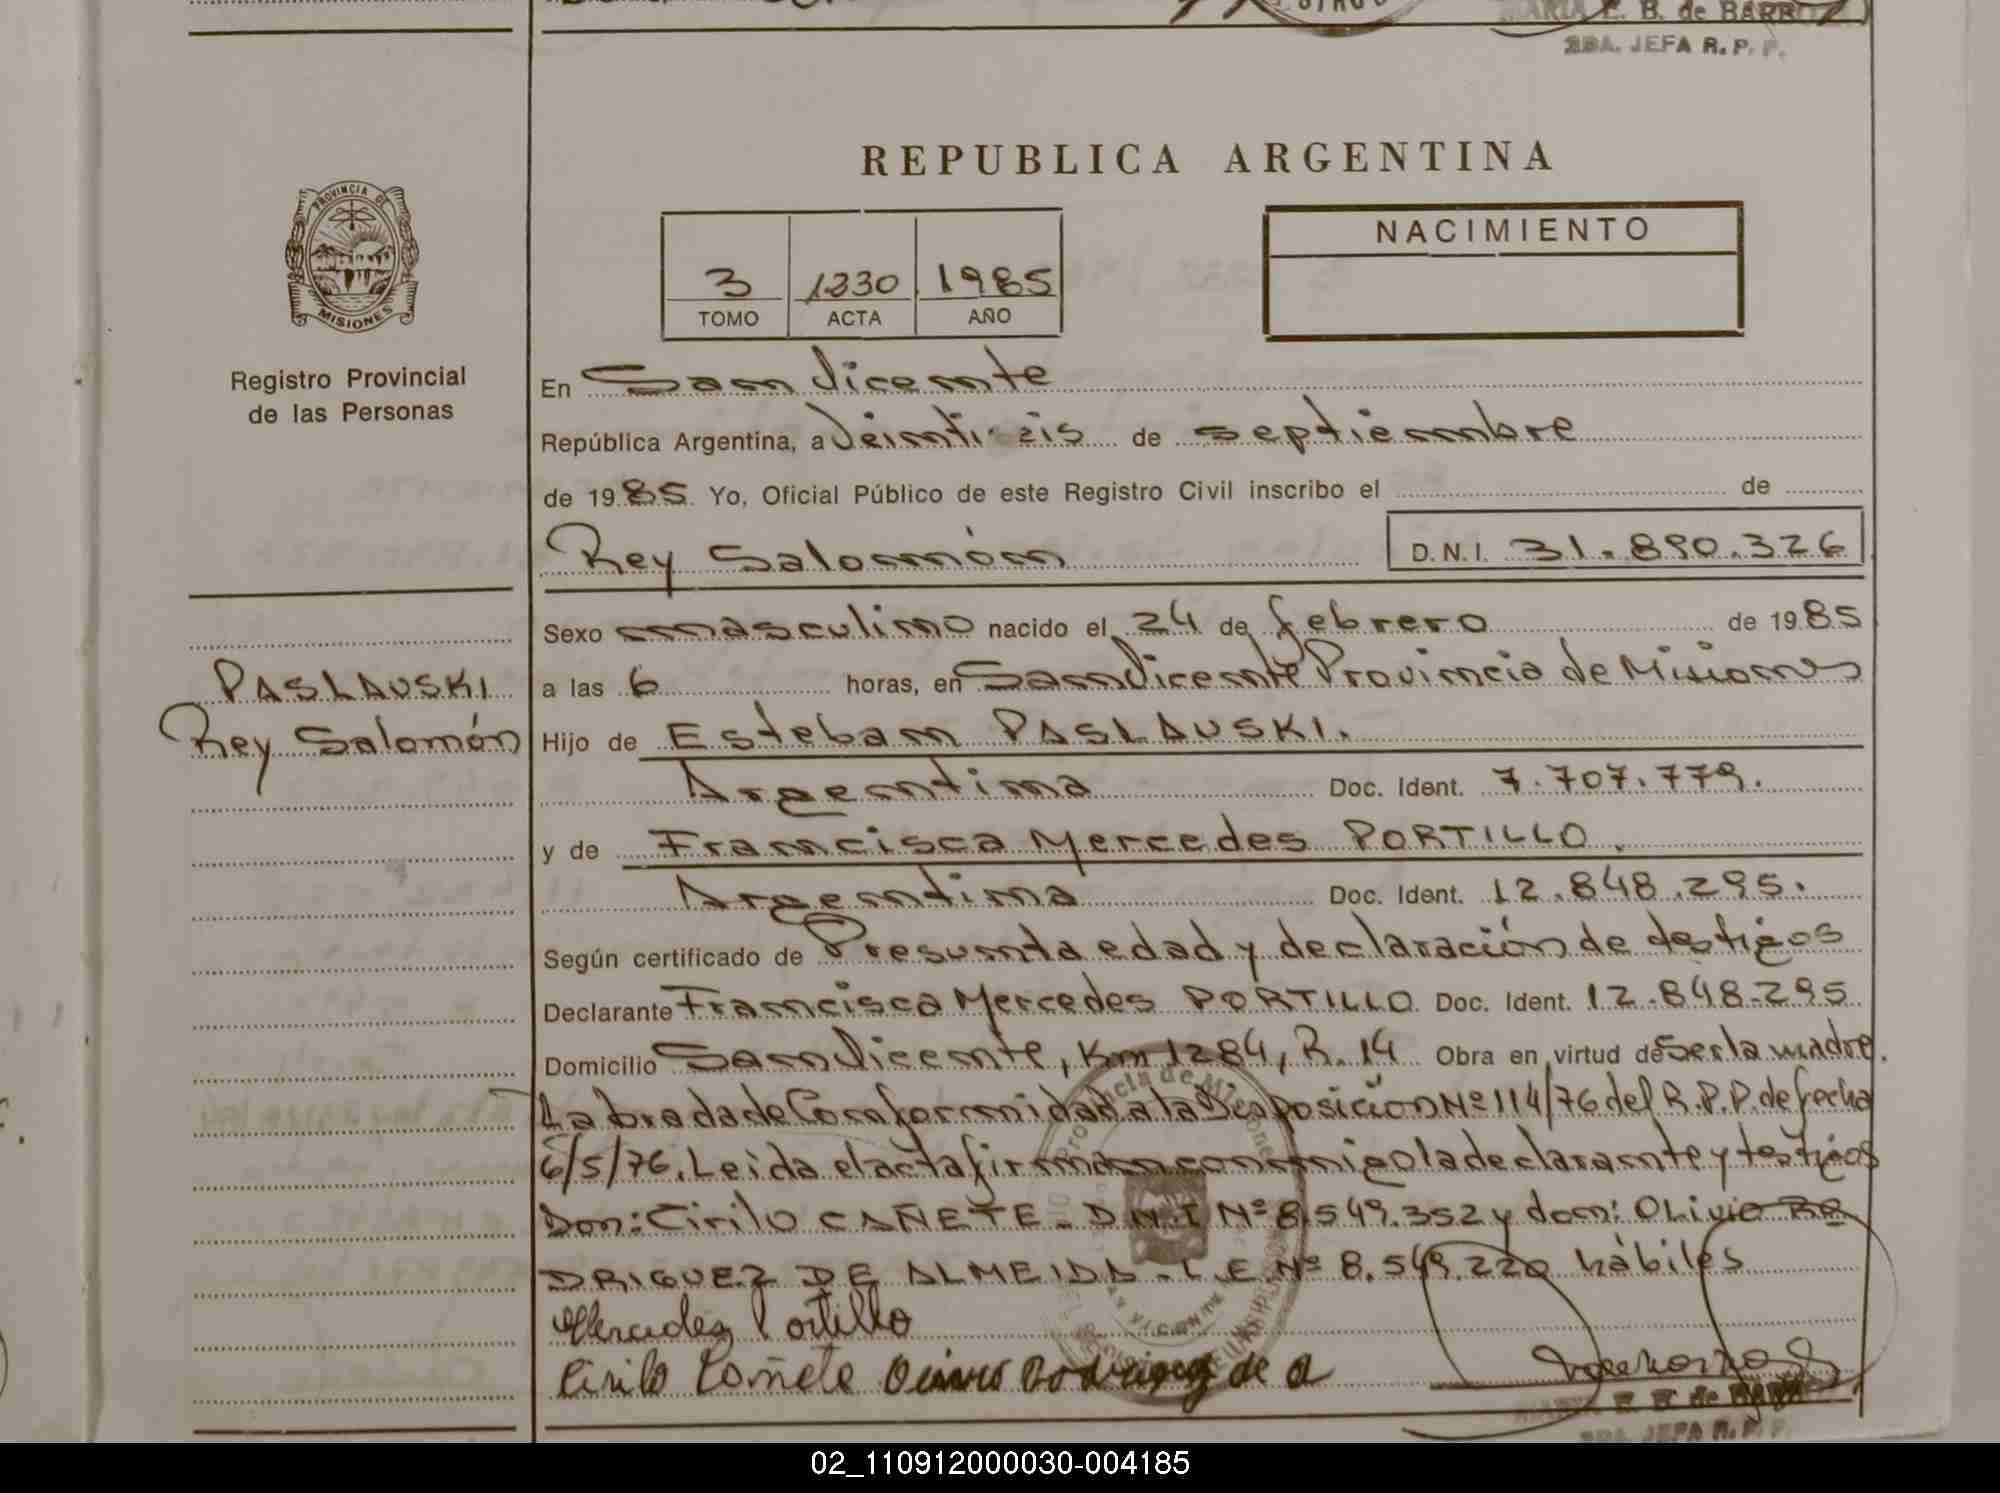 MARIA E. B. de BARR
2DA. JEFA R. P. P.
REPUBLICA ARGENTINA
PROVINCIA DE
MISIONES
Registro Provincial
de las Personas
3 1330 1985
TOMO ACTA AÑO
NACIMIENTO
En San Vicente
República Argentina, a Veintiseis de septiembre
de 1985. Yo, Oficial Público de este Registro Civil inscribo el de
Rey Salomón D.N.I. 31.890.326
Sexo masculino nacido el 24 de febrero de 1985
PASLAUSKI a las 6 horas, en San Vicente Provincia de Misiones
Rey Salomón Hijo de Esteban PASLAUSKI.
Argentina Doc. Ident. 7.707.779.
y de Francisca Mercedes PORTILLO.
Argentina Doc. Ident. 12.848.295.
Según certificado de Presunta edad y declaración de testigos
Declarante Francisca Mercedes PORTILLO Doc. Ident. 12.848.295
Domicilio San Vicente, Km 1284, R. 14 Obra en virtud de Ser la madre.
Labrada de Conformidad a la Disposición Nº 114/76 del R.P.P. de fecha
6/5/76. Leida el acta firman conmigo la declarante y testigos
Don: Cirilo CAÑETE. D.N.I Nº 8.549.352 y don: OLivio RO
DRIGUEZ DE ALMEIDA. L.E. Nº 8.549.220 hábiles
Mercedes Portillo
Cirilo Cañete Rodriguez de a
E. B. de BARR
2DA. JEFA R. P. P.
02_110912000030-004185